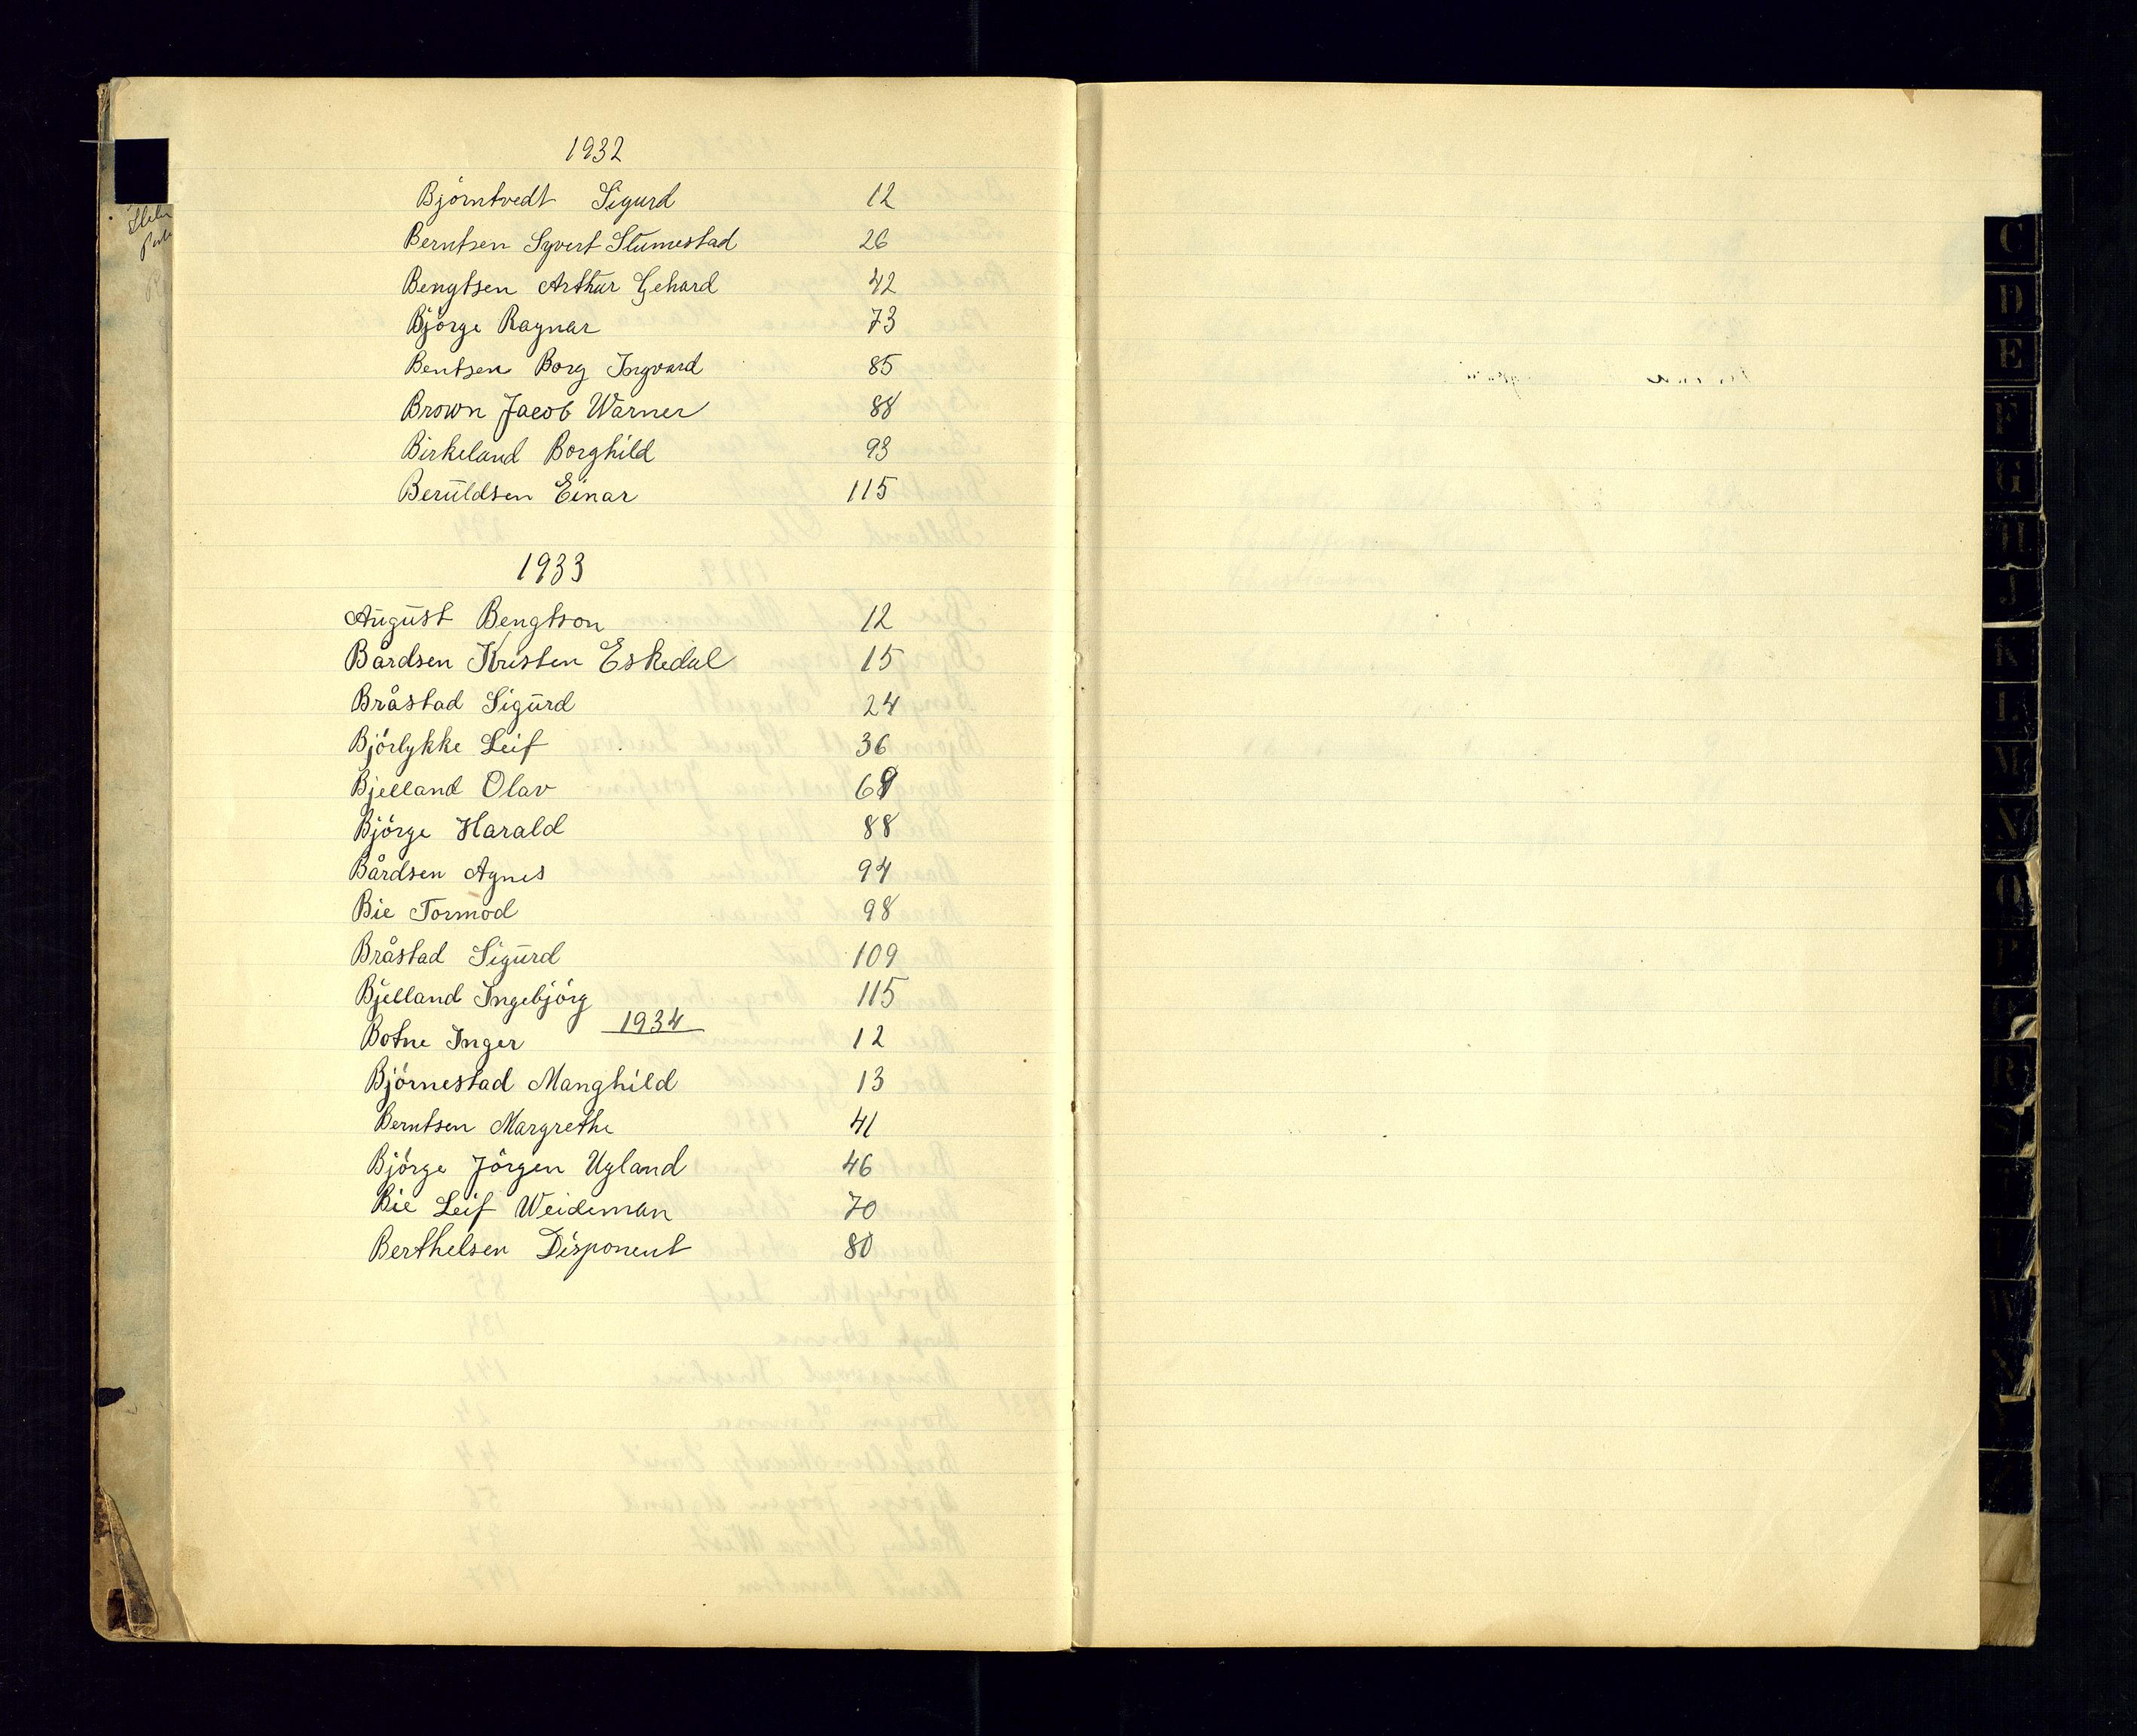 1932
Björntvedt Sigurd 12
Berntsen Syvert Stumestad 26
Bengtsen Arthur Gehard 42
Björge Ragnar 73
Bentsen Borg Ingvard 85
Brown Jacob Warner 88
Birkeland Borghild 93
Beruldsen Einar 115
1933
August Bengtson 12
Bårdsen Kristen Eskedal 15
Bråstad Sigurd 24
Björlykke Leif 36
Bjelland Olav 69
Björge Harald 88
Bårdsen Agnes 94
Bie Tormod 98
Bråstad Sigurd 109
Bjelland Ingebjörg 115
1934
Botne Inger 12
Björnestad Manghild 13
Berntsen Margrethe 41
Björge Jörgen Ugland 46
Bie Leif Weideman 70
Berthelsen Disponent 80
C
D
E
F
G
H
J
K
L
M
N
O
P
R